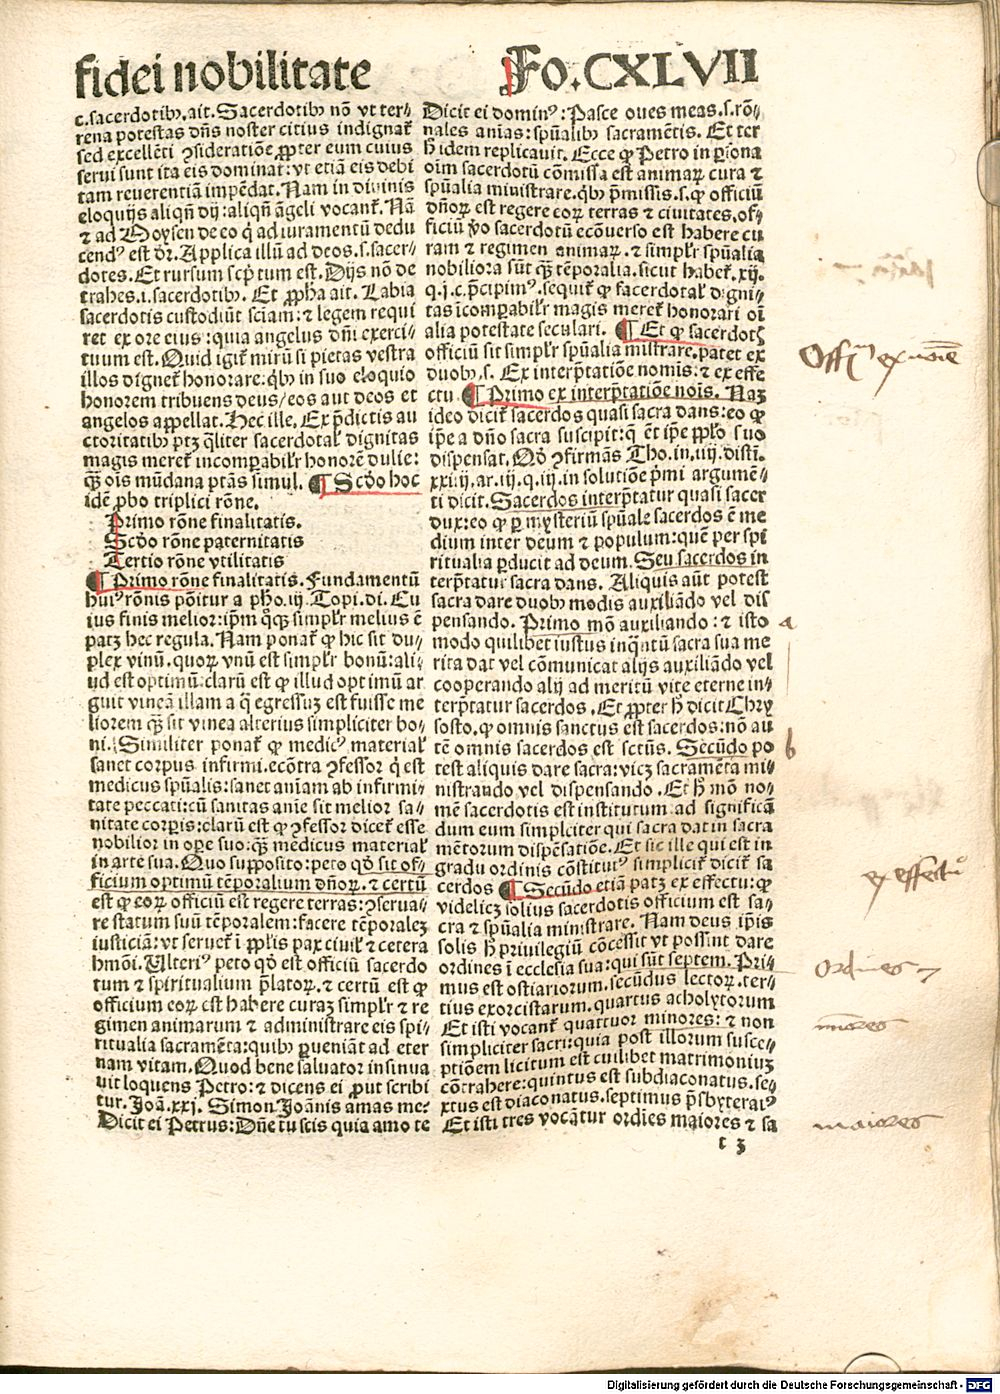 fidei nobilitate
Fo. CXLVII
c. sacerdotibꝰ. ait. Sacerdotibꝰ nõ vt ter-
rena potestas dñs noster citius indignat̃
sed excellẽti ꝯsideratiõe ꝓpter eum cuius
serui sunt ita eis dominat̃: vt etiã eis debi
tam reuerentiã impẽdat. Nam in diuinis
eloquijs aliqñ dij: aliqñ ãgeli vocant̃. Nã
⁊ ad Moysen de eo q̇ ad iuramentũ dedu
cendꝰ est dr̃. Applica illũ ad deos. s. sacer-
dotes. Et rursum scp̃tum est. Dijs nõ de
trahes. i. sacerdotibꝰ. Et ꝓpha ait. Labia
sacerdotis custodiũt sciam̃: ⁊ legem requi
ret ex ore eius: quia angelus dñi exerci-
tuum est. Quid igit̃ mirũ si pietas vestra
illos dignet̃ honorare: qbꝰ in suo eloquio
honorem tribuens deus/ eos aut deos et
angelos appellat. Hec ille. Ex p̃dictis au
ctoritatibꝰ ptꝫ q̃liter sacerdotal̃ dignitas
magis meret̃ incomꝑabilr̃ honorẽ dulie:
q̃ꝫ oĩs mũdana ptãs simul. ¶ Scdo hoc
idẽ ꝓbo triplici rõne.
Primo rõne finalitatis.
Scdo rõne paternitatis
Tertio rõne vtilitatis
¶ Primo rõne finalitatis. Fundamentũ
huiꝰ rõnis põitur a pho. iij. Topi. di. Cu
ius finis melior: ip̃m q̇ꝫ simplr̃ melius ẽ
patꝫ hec regula. Nam ponat̃ ꝙ hic sit du-
plex vinũ. quoꝝ vnũ est simplr̃ bonũ: ali-
ud est optimũ: clarũ est ꝙ illud optimũ ar
guit vineã illam a q̃ egressuꝫ est fuisse me
liorem q̃ꝫ sit vinea alterius simpliciter bo-
ni. Similiter ponat̃ ꝙ medicꝰ material̃
sanet corpus infirmi. ecõtra ꝯfessor q̇ est
medicus spũalis: sanet aniam ab infirmi-
tate peccati: cũ sanitas anie sit melior sa-
nitate corꝑis: clarũ est ꝙ ꝯfessor dicet̃ esse
nobilior in oꝑe suo: q̃ꝫ medicus material̃
in arte sua. Quo supposito: peto qd̾ sit of-
ficium optimũ tẽporalium dñoꝝ. ⁊ certũ
est ꝙ eoꝝ officiũ est regere terras: ꝯserua-
re statum suũ tẽporalem: facere tẽporaleꝫ
iusticiã: vt seruet̃ ĩ ꝓp̃lis pax ciuil̃ ⁊ cetera
hmõi. Ulteriꝰ peto qd̾ est officiũ sacerdo
tum ⁊ spiritualium p̃latoꝝ. ⁊ certũ est ꝙ
officium eoꝝ est habere curaꝫ simplr̃ ⁊ re
gimen animarum ⁊ administrare eis spi-
ritualia sacramẽta: quibꝰ ꝑueniãt ad eter
nam vitam. Quod bene saluator insinua
uit loquens Petro: ⁊ dicens ei ꝓut scribi
tur. Joã. xxj. Simon Joãnis amas me?
Dicit ei Petrus: Dñe tu scis quia amo te
Dicit ei dominꝰ: Pasce oues meas. s. rõ-
nales anĩas: spũalibꝰ sacramẽtis. Et ter
h̃ idem replicauit. Ecce ꝙ Petro in ꝑsona
oĩm sacerdotũ cõmissa est animaꝝ cura ⁊
spũalia ministrare. qbꝰ p̃missis. s. ꝙ officiũ
dñoꝝ est regere eoꝝ terras ⁊ ciuitates. of-
ficiũ ꝟo sacerdotũ ecõuerso est habere cu
ram ⁊ regimen animaꝝ. ⁊ simplr̃ spũalia
nobiliora sũt q̃ꝫ tẽporalia. sicut habet̃. xij.
q. j. c. p̃cipimꝰ. sequit̃ ꝙ sacerdotal̃ digni-
tas ĩcomꝑabilr̃ magis meret̃ honorari oĩ
alia potestate seculari. ¶ Et ꝙ sacerdotꝫ
officiũ sit simplr̃ spũalia mĩstrare. patet ex
duobꝰ. s. Ex interp̃tatiõe nomĩs: ⁊ ex effe
ctu ¶ Primo ex interp̃tatiõe noĩs. Naꝫ
ideo dicit̃ sacerdos quasi sacra dans: eo ꝙ
ip̃e a dño sacra suscipit: q̃ ẽt ip̃e pp̃lo suo
dispensat. Qd̾ ꝯfirmãs Tho. in. iiij. distĩ.
xxiiij. ar. iij. q. iij. in solutiõe p̃mi argumẽ-
ti dicit. Sacerdos interp̃tatur quasi sacer
dux: eo ꝙ ꝑ mysteriũ spũale sacerdos ẽ me
dium inter deum ⁊ populum: quẽ per spi
ritualia ꝑducit ad deum. Seu sacerdos in
terp̃tatur sacra dans. Aliquis aũt potest
sacra dare duobꝰ modis auxiliãdo vel dis
pensando. Primo mõ auxiliando: ⁊ isto
modo quilibet iustus inq̃ntũ sacra sua me
rita dat vel cõmunicat alijs auxiliãdo vel
cooperando alij ad meritũ vite eterne in-
terp̃tatur sacerdos. Et ꝓpter h̃ dicit Chry
sosto. ꝙ omnis sanctus est sacerdos: nõ au
tẽ omnis sacerdos est sctũs. Secũdo po
test aliquis dare sacra: vicꝫ sacramẽta mi-
nistrando vel dispensando. Et h̃ mõ no-
mẽ sacerdotis est institutum ad significã
dum eum simpliciter qui sacra dat in sacra
mẽtorum dispẽsatiõe. Et sic ille qui est in
gradu ordinis cõstitutꝰ simplicit̃ dicit̃ sa
cerdos ¶ Secũdo etiã patꝫ ex effectu: ꝙ
videlicꝫ solius sacerdotis officium est sa-
cra ⁊ spũalia ministrare. Nam deus ip̃is
solis h̃ priuilegiũ cõcessit vt possint dare
ordines ĩ ecclesia sua: qui sũt septem. Pri-
mus est ostiariorum. secũdus lectoꝝ. ter-
tius exorcistarum. quartus acholytorum
Et isti vocant̃ quattuor minores: ⁊ non
simpliciter sacri: quia post illorum susce-
ptiõem licitum est cuilibet matrimoniuꝫ
cõtrahere: quintus est subdiaconatus. se-
xtus est diaconatus. septimus p̃sbyteratꝰ
Et isti tres vocãtur ordĩes maiores ⁊ sa
t 3
a
b
ex effectu
Ordines 7
minores
maiores
Digitalisierung gefördert durch die Deutsche Forschungsgemeinschaft - DFG